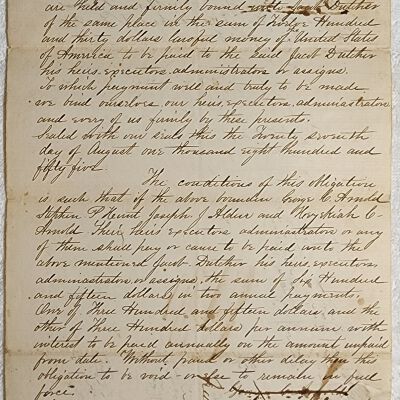 are held and firmly bound unto Jacob Dutcher
of the same place in the sum of Twelve Hundred
and thirty dollars lawful money of United States
of America to be paid to the said Jacob Dutcher
his heirs, executors, administrators or assigns.
To which payment well and truly to be made
we bind ourselves, our heirs, executors, administrators
and every of us firmly by these presents.
Sealed with our Seals this the Twenty seventh
day of August one thousand eight hundred and
fifty five.
The conditions of this obligation
is such that if the above bounden George C. Arnold
Stephen P. Joseph J. Alder and Hezekiah C
Arnold. Their heirs executors administrators or any
of them shall pay or cause to be paid unto the
above mentioned Jacob Dutcher his heirs, executors,
administrators or assigns, the sum of Six Hundred
and fifteen dollars, in two annual payments.
One of three Hundred and fifteen dollars, and the
other of Three Hundred dollars, per annum with
interest to be paid annually on the amount unpaid
from date. Without fraud or other delay then the
obligation to be void - or else to remain in full
force.